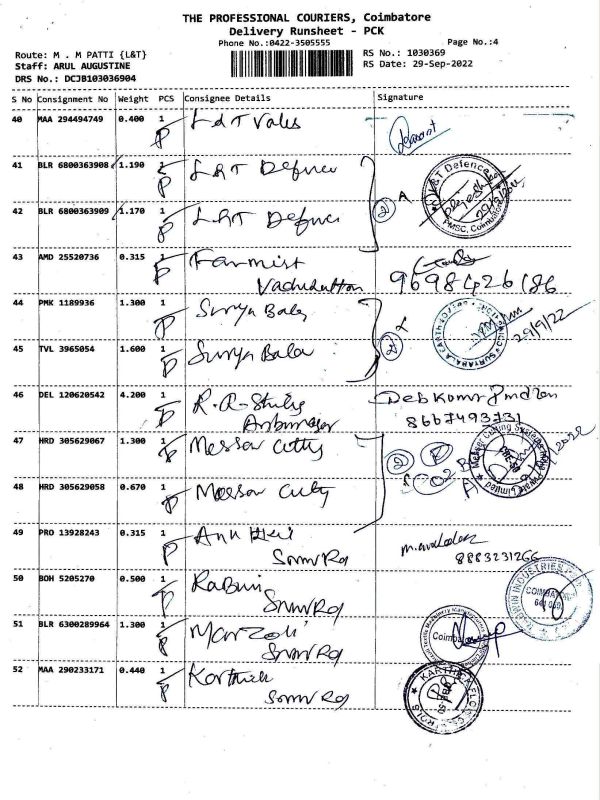 THE PROFESSIONAL COURIERS, Coimbatore
Delivery Runsheet - PCK
Phone No.:0422-3505555
Page No.:4
Route: M . M PATTI {L&T}
RS No.: 1030369
Staff: ARUL AUGUSTINE
RS Date: 29-Sep-2022
DRS No.: DCJB103036904
S No Consignment No Weight PCS Consignee Details Signature
40 MAA 294494749 0.400 1 L&T Valves
P
41 BLR 6800363908 1.190 1 L&T Defence
P
L&T Defence
PMSC, Coimbatore
29/9/2022
2
42 BLR 6800363909 1.170 1 L&T Defence
P
43 AMD 25520736 0.315 1 Farmist
P Vadududhan
9698426186
44 PMK 1189936 1.300 1 Surya Bala
P
SURYABALA EARTH
29/9/22
2
45 TVL 3965054 1.600 1 Surya Bala
P
46 DEL 120620542 4.200 1 R.A-
P
8667493731
47 HRD 305629067 1.300 1 Messer Cutty
P
2
Messer Cutting Systems
Private Limited
48 HRD 305629058 0.670 1 Messer Cutty
P
49 PRO 13928243 0.315 1
P SNMV Rd
8883231266
50 BOH 5205270 0.500 1 Rabwin
P SNMV Rd
RABWIN INDUSTRIES
COIMBATORE
641 050
51 BLR 6300289964 1.300 1 Marzoli
P SNMV Rd
Coimbatore
52 MAA 290233171 0.440 1 Karthick
P SNMV Rd